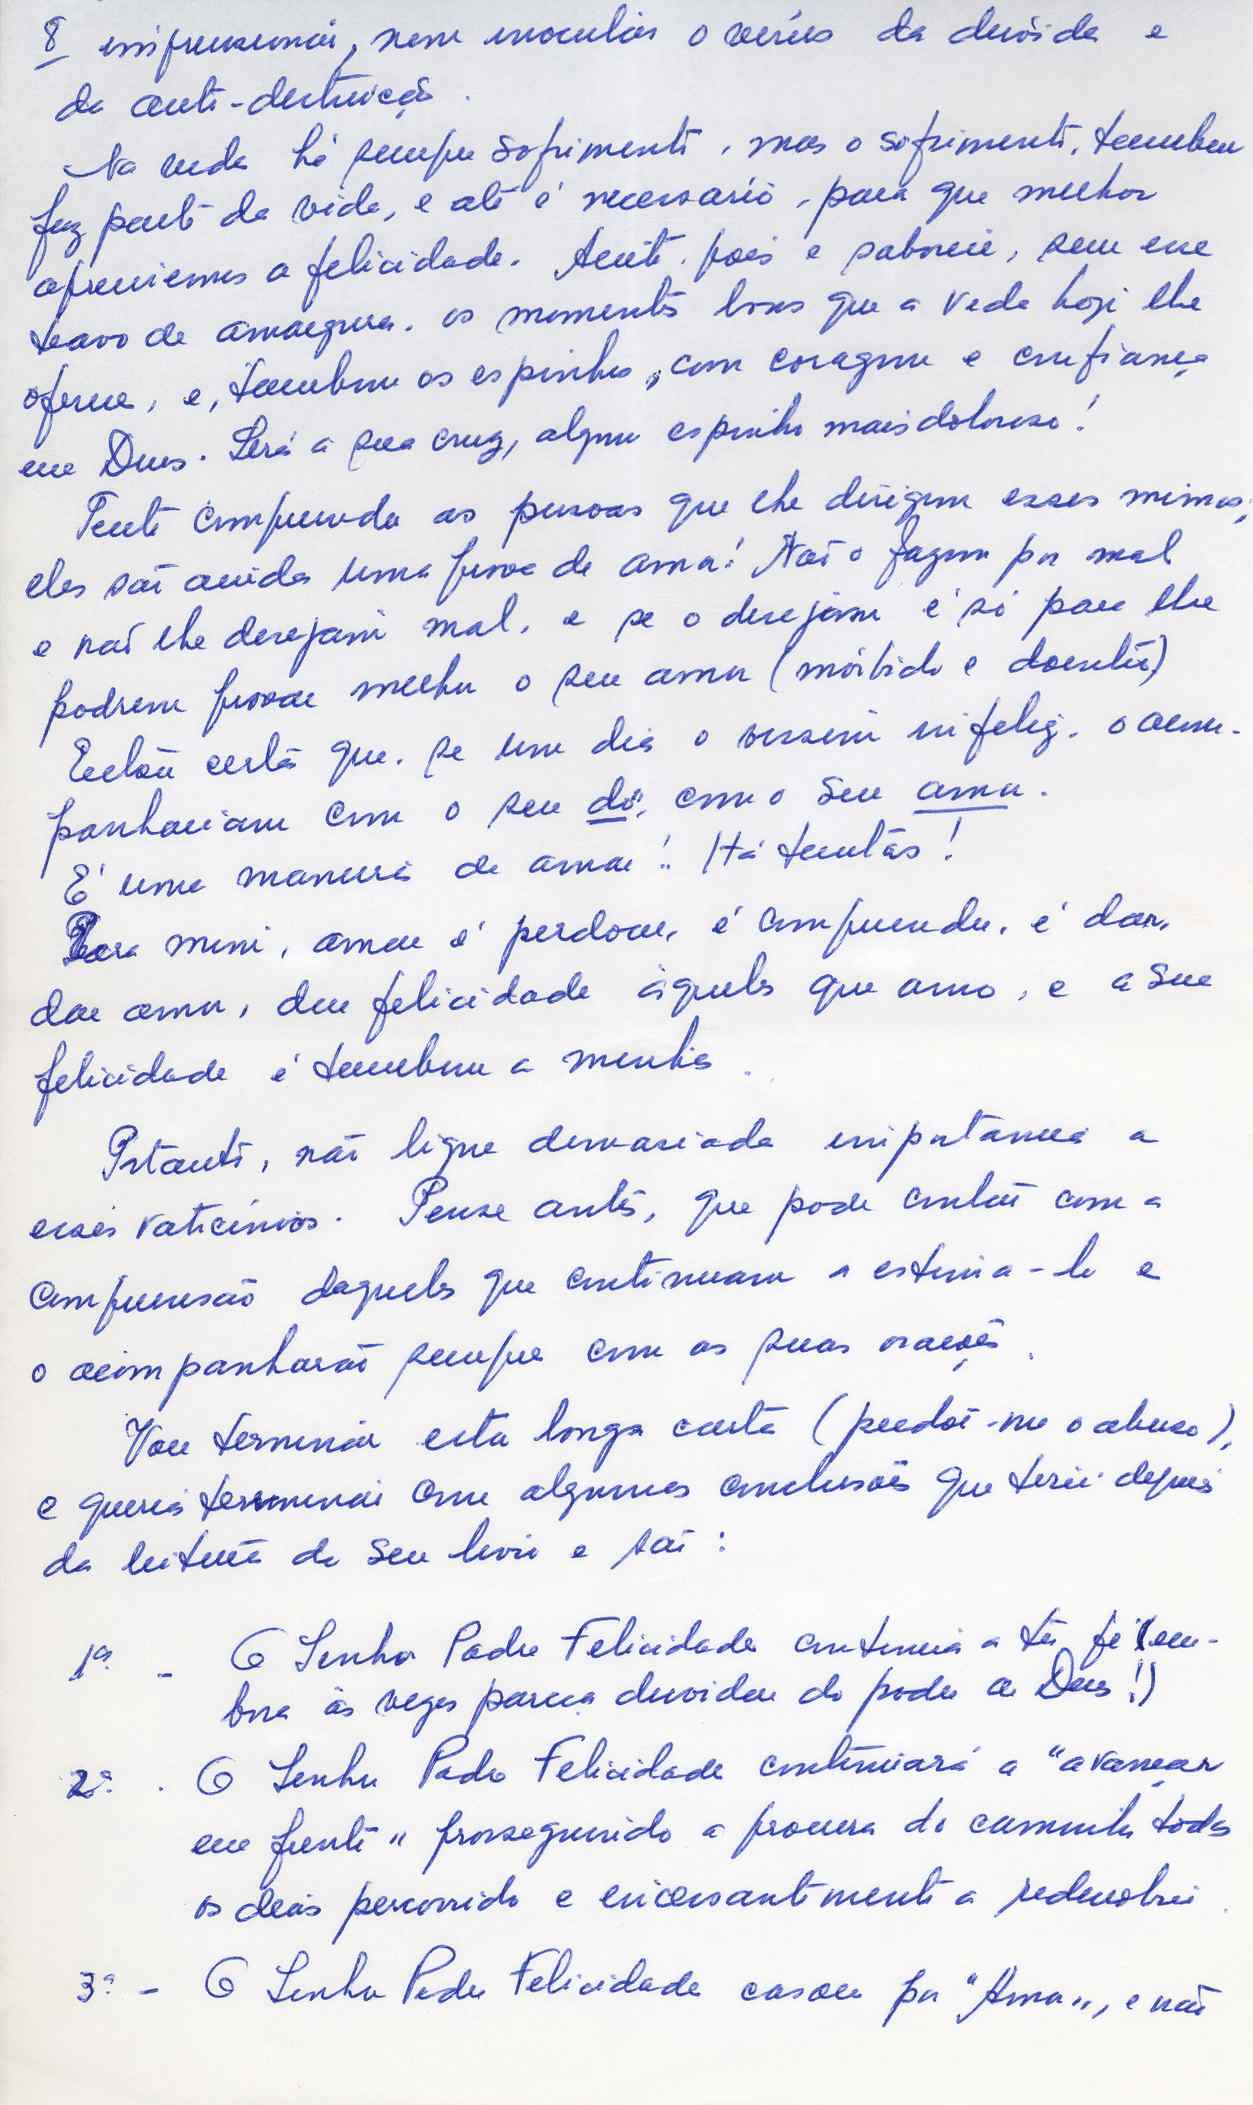 8 impressionar, nem inocular o vírus da dúvida e
da auto-destruição.
Na vida há sempre sofrimento, mas o sofrimento, também
faz parte da vida, e até é necessário, para que melhor
apreciemos a felicidade. Aceite pois e saboreie, sem um
travo de amargura. os momentos bons que a vida hoje lhe
oferece, e, também os espinhos, com coragem e confiança
em Deus. Será a sua cruz, algum espinho mais doloroso!
Tente compreender as pessoas que lhe dirigem esses mimos;
eles são ainda uma prova de amor! Não o fazem por mal
e não lhe desejam mal, e se o desejam é só para lhe
poderem provar melhor o seu amor (mórbido e doentio)
Estou certa que, se um dia o vissem infeliz, o acom-
panhariam com o seu dó, com o seu amor.
É uma maneira de amar!.. Há tantas!
Para mim, amar é perdoar, é compreender, é dar,
dar amor, dar felicidade àqueles que amo, e a sua
felicidade é também a minha.
Portanto, não ligue demasiada importância a
esses vaticínios. Pense antes, que pode contar com a
compreensão daqueles que continuam a estimá-lo e
o acompanharão sempre com as suas orações.
Vou terminar esta longa carta (perdoe-me o abuso),
e queria terminar com algumas conclusões que tirei depois
da leitura do seu livro e são:
1ª. - O Senhor Padre Felicidade continua a ter fé (em-
bora às vezes pareça duvidar do poder de Deus!)
2ª. - O Senhor Padre Felicidade continuará a "avançar
em frente" prosseguindo a procura do caminho todos
os dias percorrido e incessantemente a redescobrir.
3ª - O Senhor Padre Felicidade casou por "Amor", e não